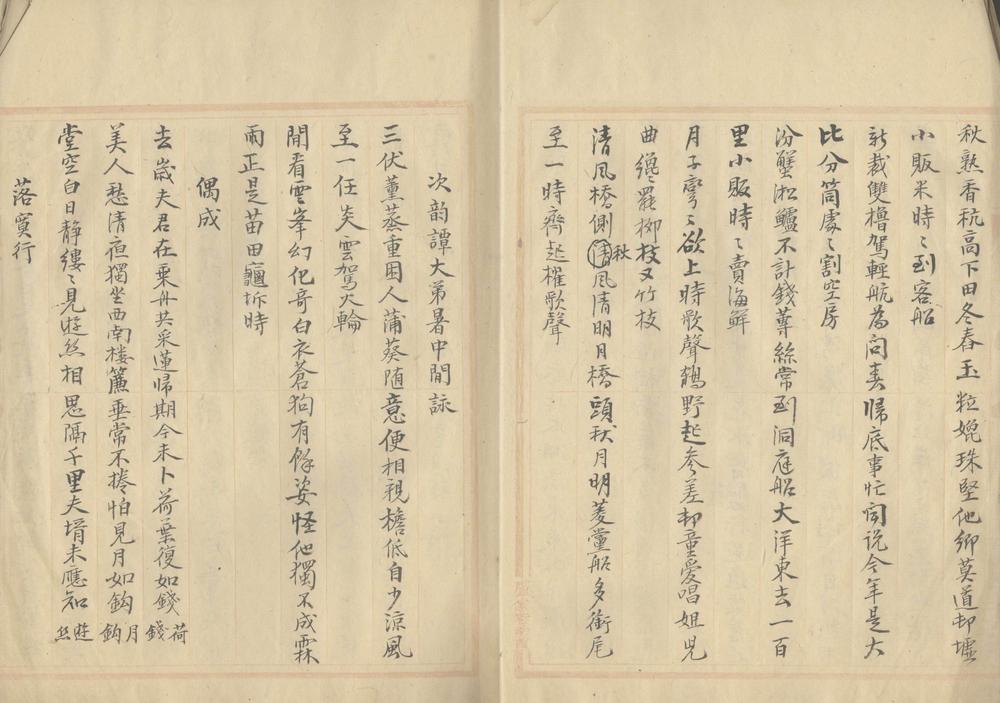 秋熟香秔高下田冬舂玉粒媲珠堅他鄉莫道邨墟
小販米時〻到客船
新裁雙櫓駕輕航為問春歸底事忙聞說今年是大
比分筒處〻割空房
汾蟹淞鱸不計錢蓴絲常到洞庭船大洋東去一百
里小販時〻賣海鮮
月子彎〻欲上時歌聲鶴野起參差邨童愛唱姐兒
曲纔罷柳枝又竹枝
清風橋側清秋風清明月橋頭秋月明菱黨船多銜尾
至一時齊起櫂歌聲
次韵譚大弟暑中閒詠
三伏薰蒸重困人蒲葵随意便相親檐低自少涼風
至一任炎雲駕火輪
閒看雲峯幻化奇白衣蒼狗有餘姿怪他獨不成霖
雨正是苗田龜坼時
偶成
去歲夫君在乘舟共采蓮歸期今未卜荷葉復如錢荷錢
美人愁清夜獨坐西南樓簾垂常不捲怕見月如鈎月鈎
堂空白日静縷〻見遊絲相思隔千里夫壻未應知遊絲
落寞行